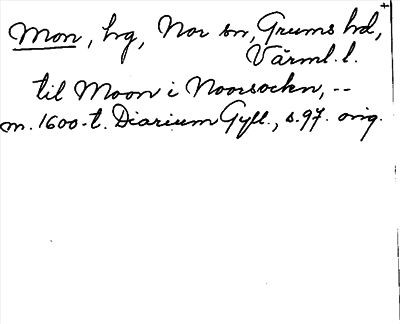 Mon, hg, Nor sn, Grums hd,
Värml. l.
til Moon i Noorsockn, --
m. 1600-t. Diarium Gyll., s. 97. orig.